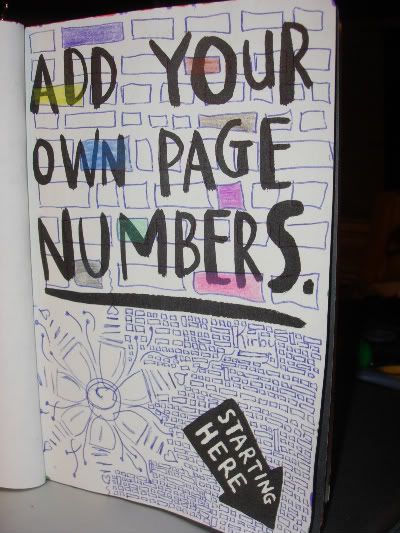 ADD YOUR
OWN PAGE
NUMBERS.
Kirby
STARTING
HERE